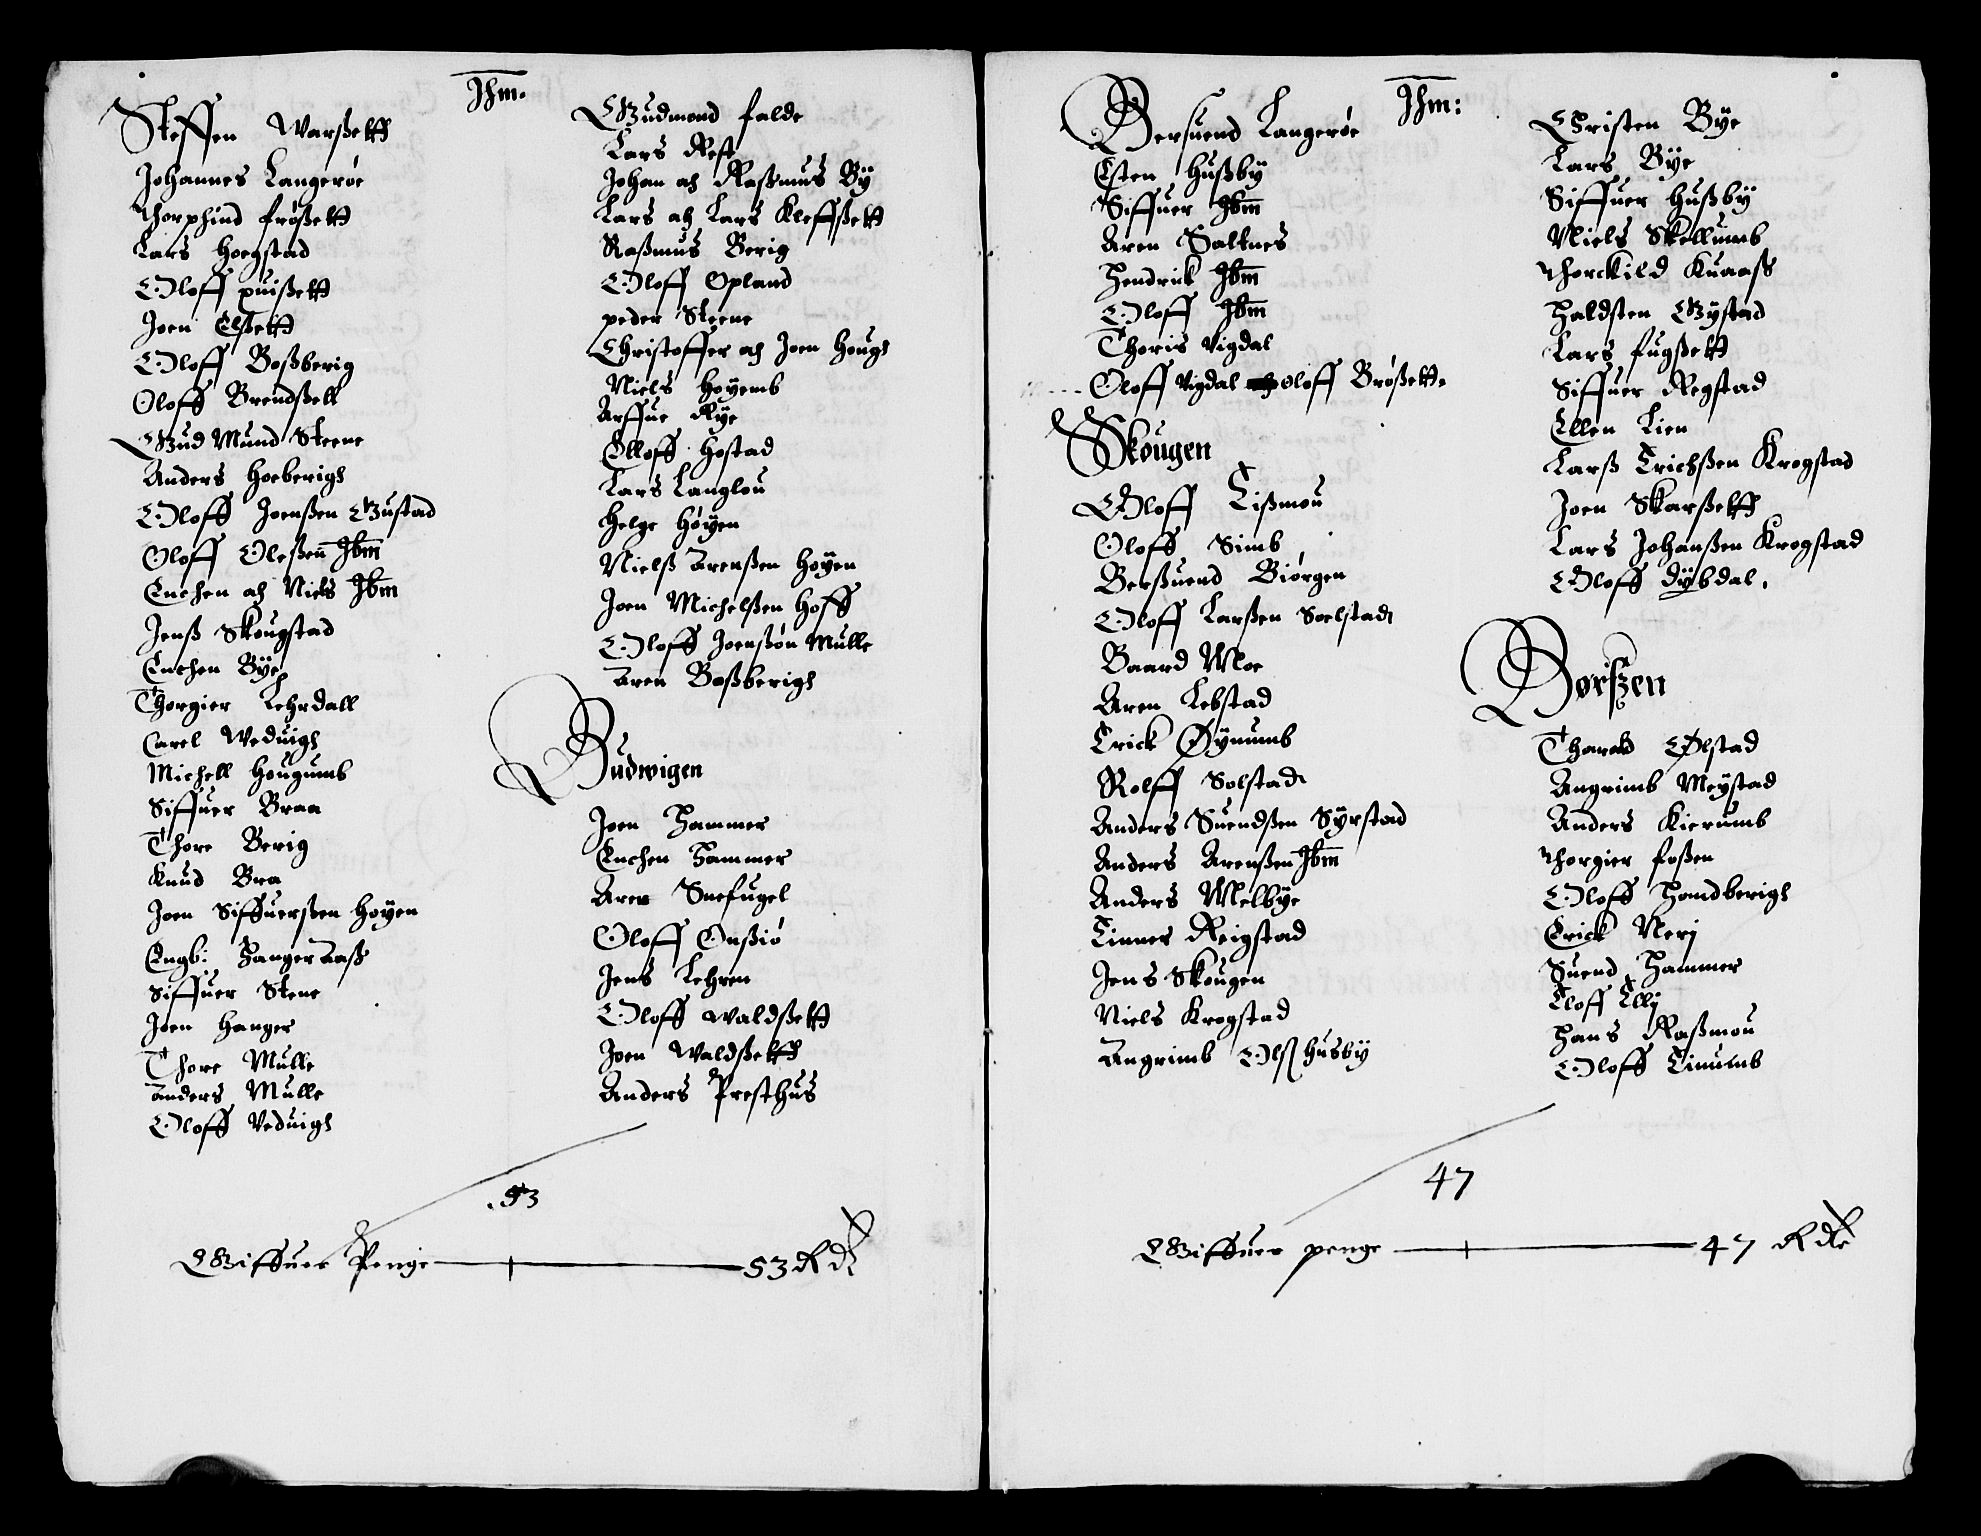 Jhm.
Steffen Warßett
Johannes Langerøe
Thorphind frøßett
Lars Hoegstad
Oloff puißett
Joen Elßett
Oloff Boßberig
Oloff Brendßell
Gudmund Steene
Anders Hoeberigh
Oloff Joenßen Gustad
Oloff Oleßen Ibm
Enchen och Niels Ibm
Jenß Skougstad
Enchen Bÿe
Thorgier Lehrdall
Carel Weduigh
Michell Hougumb
Siffuer Braa
Thore Berig
Knud Bra
Joen Siffuerßen Hoyen
Engb: Hanger Aaß
Siffuer Stene
Joen Hanger
Thore Mulle
Anders Mulle
Oloff Veduigh
Gudmond falde
Lars Rest
Johan och Raßmus Bÿ
Lars och Lars Kleffßett
Raßmus Berig
Oloff Opland
peder Steene
Christoffer och Joen Hough
Niels Hoyemb
Arffue Rÿe
Olloff Hostad
Lars Langlou
Helge Høÿen
Nielß Arenßen Hoÿen
Joen Michelßen Hoff
Oloff Joenßøn Mulle
Aren Boßberigh
Budwigen
Joen Hammer
Enchen Hammer
Aren Snefugel
Oloff Onßiø
Jens Lehren
Oloff Waldßett
Joen Waldßett
Anders Presthus
53
Giffuer Penge 53 Rd
Jhm:
Bersuend Langerøe
Esten Hußbÿ
Siffuer Ibm
Aren Saltnes
Hendrick Ibm
Oloff Ibm
Thoris Vigdal
Oloff Vigdal Oloff Brøßett
Skougen
Oloff Lißmou
Oloff Simb
Berßuend Biørgen
Oloff Larßen Soelstad
Baard Moe
Aren Lebstad
Erick Øÿnumb
Rolff Solstad
Anders Suendßen Sÿrstad
Anders Arenßen Ibm
Anders Melbÿe
Einner Reigstad
Jens Skougen
Niels Krogstad
Angrimb Olß Husbÿ
Christen Bÿe
Lars Bÿe
Siffuer Hußbÿ
Niels Skellumb
Thorckild Kuaaß
Haldsten Gÿstad
Lars fugßett
Siffuer Regstad
Ellen Lien
Larß Erichßen Krogstad
Joen Skarßett
Lars Johanßen Krogstad
Oloff dÿbdal.
Børßen
Ølstad
Angrimb Meÿstad
Anders Kierumb
Thorgier foßen
Oloff Handberigh
Erick Meri
Suend Hammer
Eloff Elli
Hans Raßmou
Oloff Einumb
47
Giffuer penge 47 Rdr